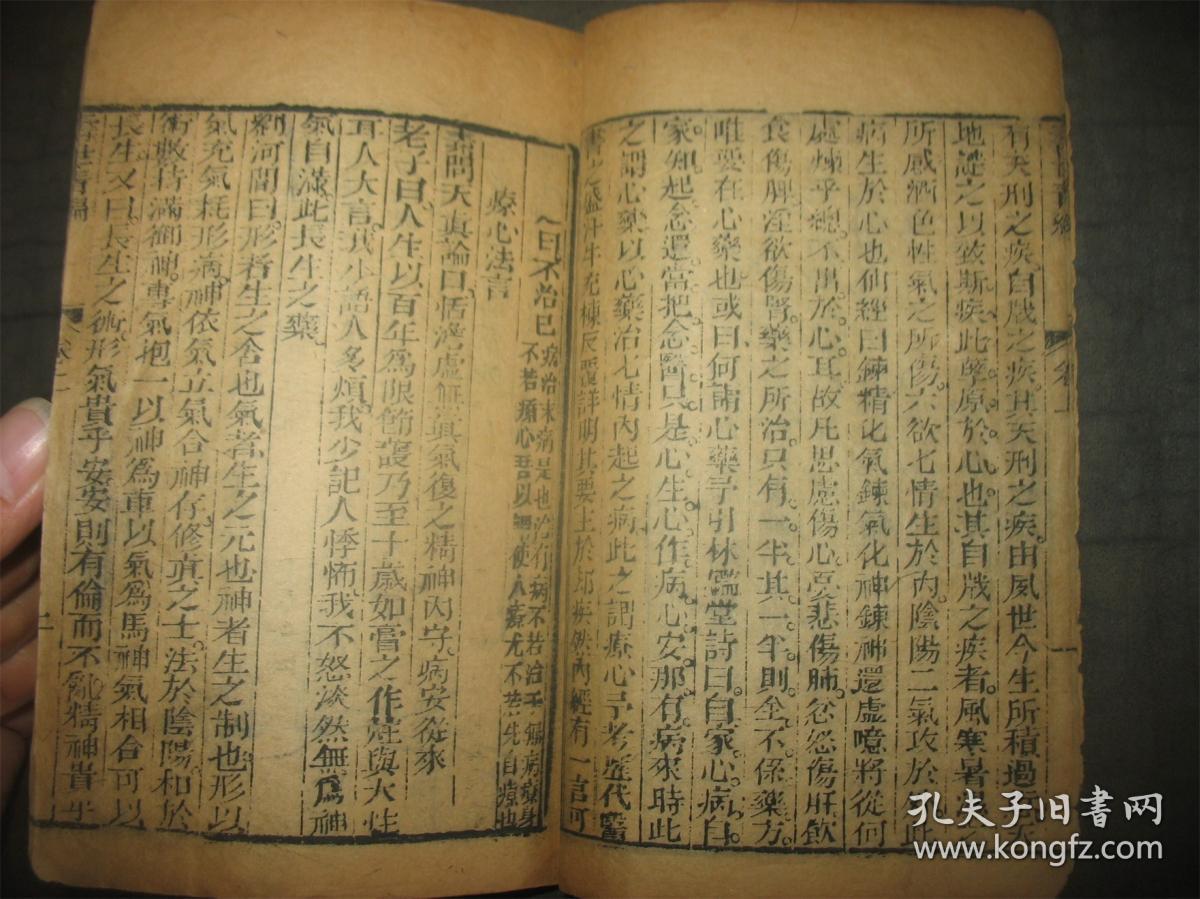 有天刑之疾自戕之疾其天刑之疾由夙世今生所積過
地譴之以致斯疾此孽原於心也其自戕之疾者風寒暑
所感酒色性氣之所傷六欲七情生於內陰陽二氣攻於此
病生於心也仙經曰鍊精化氣鍊氣化神鍊神還虛噫將從何
處煉乎總不出於心耳故凡思慮傷心憂悲傷肺忿怒傷肝飲
食傷脾淫欲傷腎藥之所治只有一半其一半則全不係藥方
唯要在心藥也或曰何謂心藥予引林鑑堂詩曰自家心病自
家知起念還當把念醫只是心生心作病心安那有病來時此
之謂心藥以心藥治七情內起之病此之謂療心予考歷代醫
書之盛汗牛充棟反覆詳明其要主於却疾然內經有一言可
曰不治已病治未病是也治有病不若治于無病療身
不若療心吾以謂使人療尤不若先自療也
療心法言
素問天眞論曰恬澹虛無眞氣復之精神內守病安從來
老子曰人生以百年爲限節護乃至千歲如膏之作炷與大性
耳人大言我少語人多煩我少記人悸怖我不怒淡然無爲神
氣自滿此長生之藥
劉河間曰形者生之舍也氣者生之元也神者生之制也形以
氣充氣耗形病神依氣立氣合神存修眞之士法於陰陽和於
術數持滿御神專氣抱一以神爲車以氣爲馬神氣相合可以
長生又曰長生之術形氣貴乎安安則有倫而不亂精神貴乎
卷一
二
孔夫子旧书网
www.kongfz.com